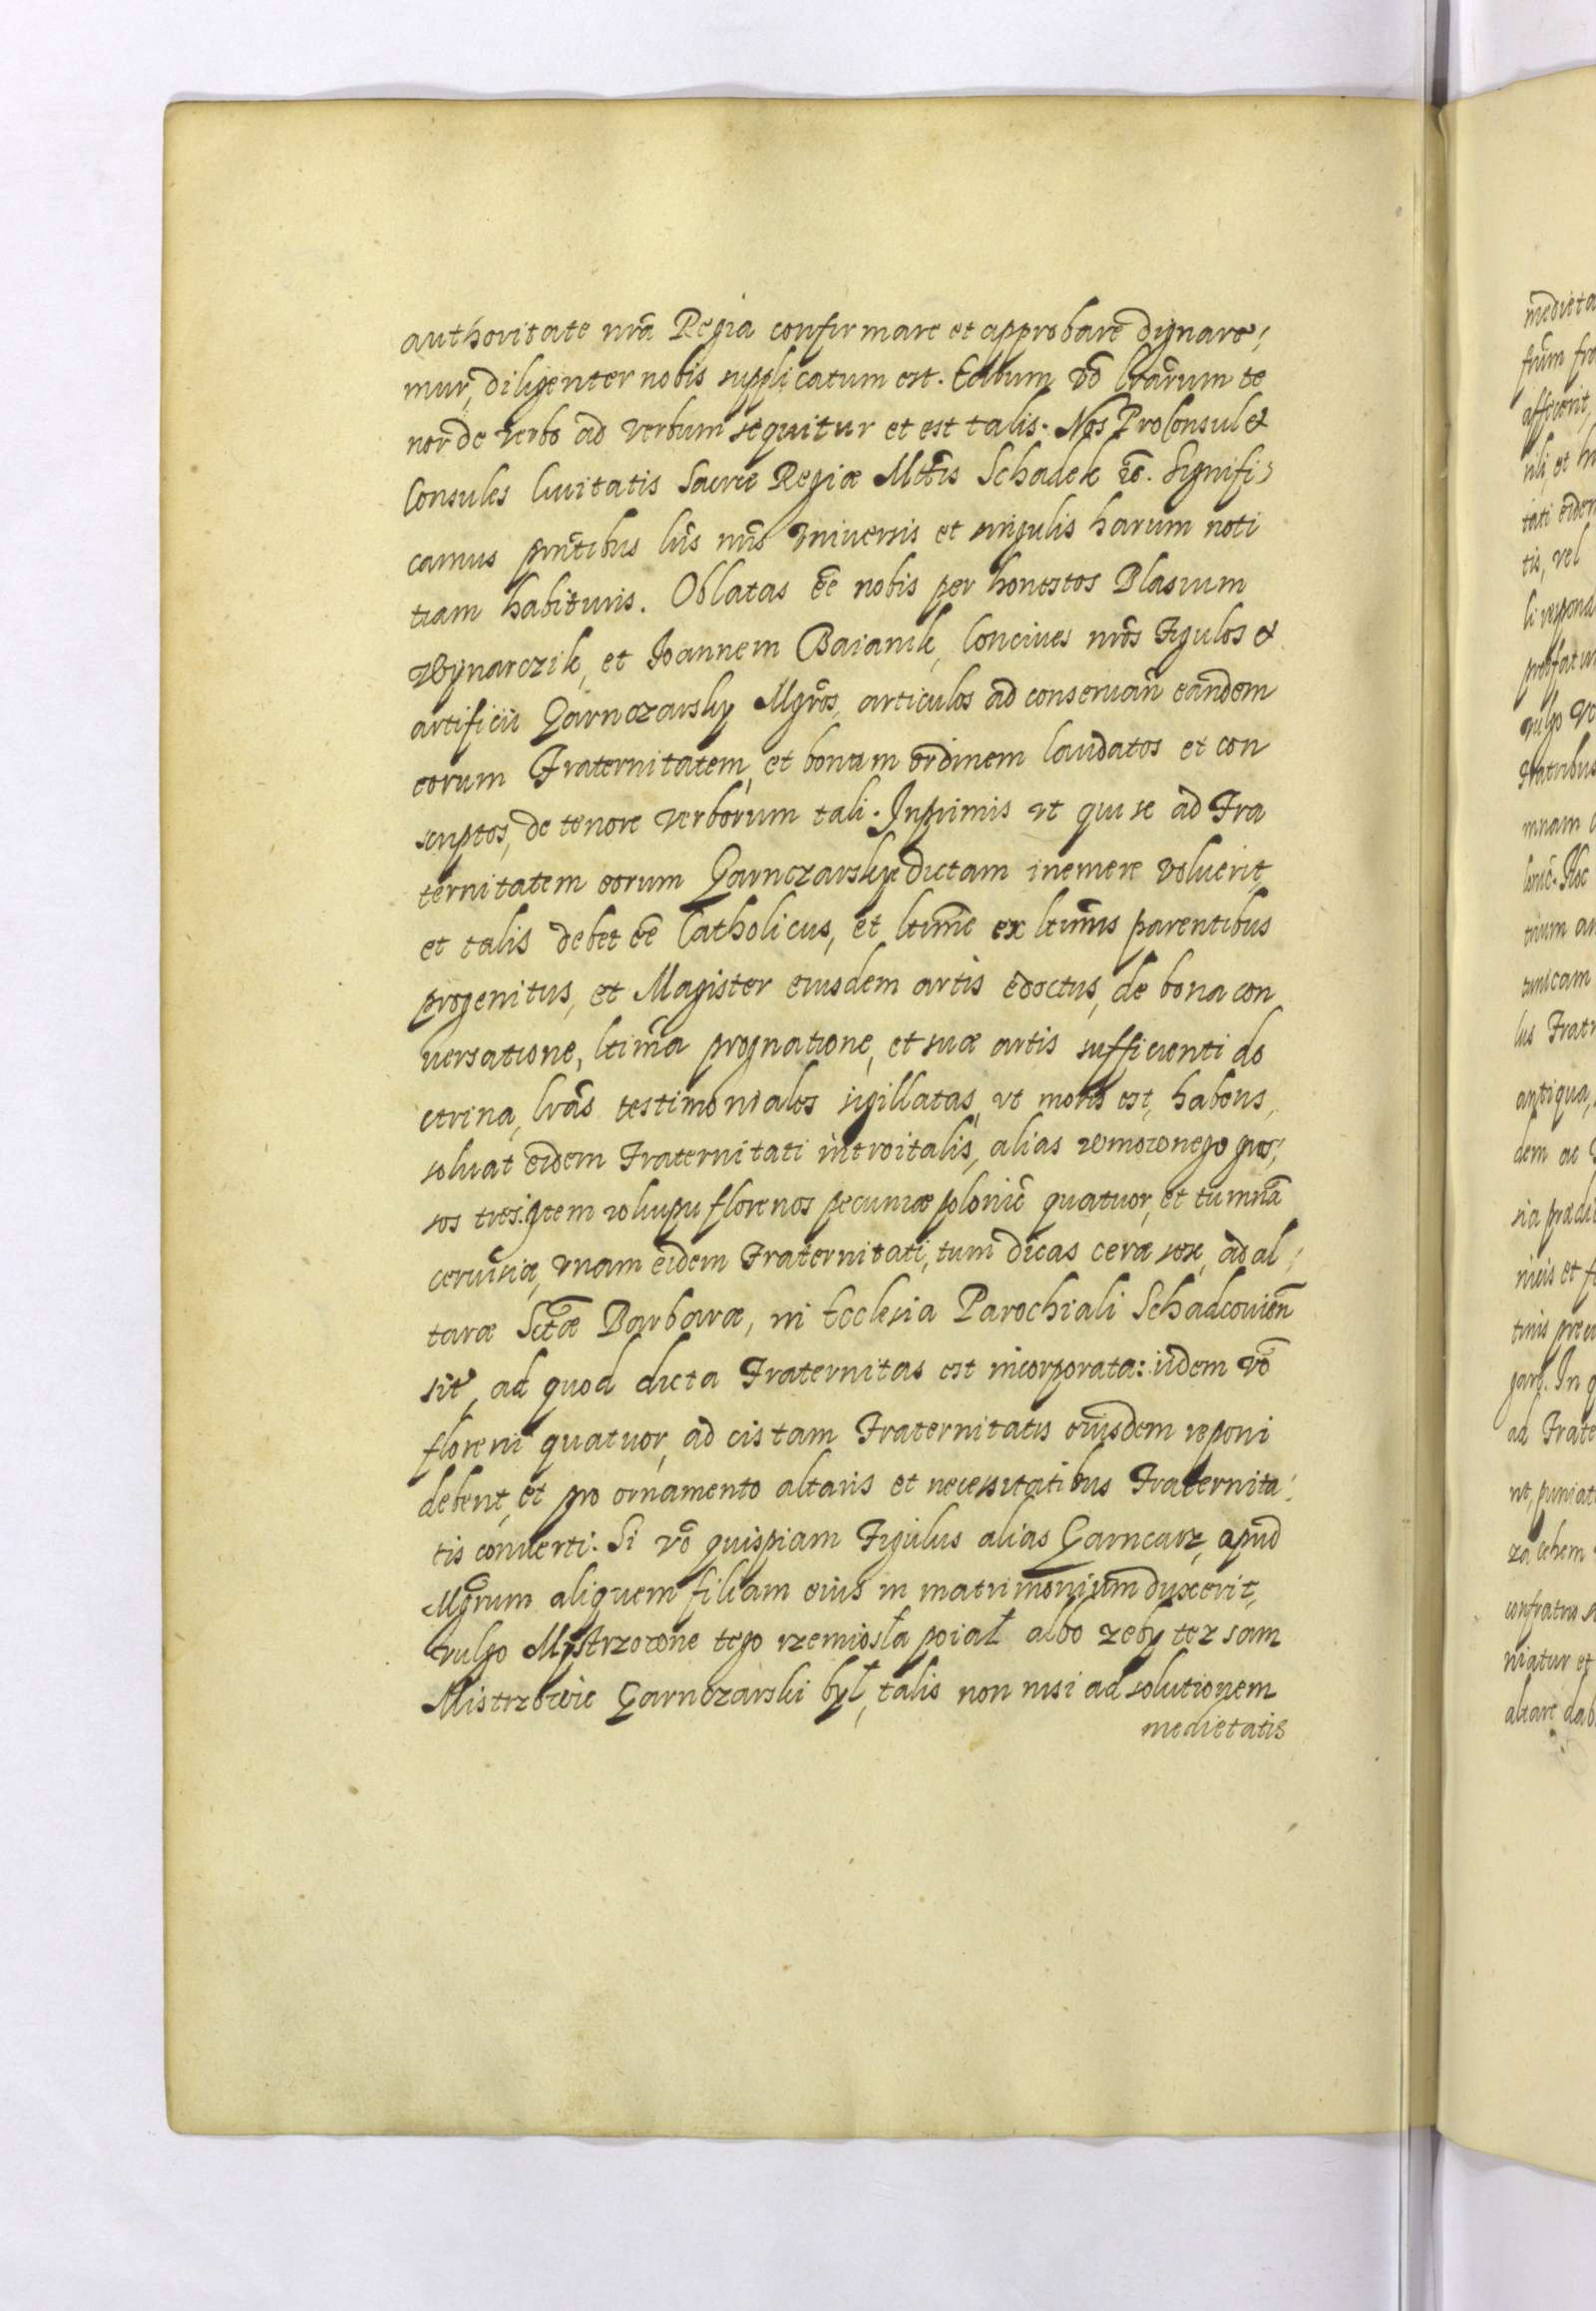 authoritate nrã Regia confirmare et approbare dignare,
mur, diligenter nobis supplicatum est. Earum võ lrãrum te
nor de verbo ad verbum sequitur et est talis. Nos ProConsul et
Consules Civitatis Sacræ Regiæ Mttis Schadek &c. Signifi,
camus pñtibus lris nris Vniuersis et singulis harum noti
tiam habituris. Oblatas eẽ nobis per honestos Blasium
Wynarczik, et Joannem Baianik, Conciues nrõs Figulos et
artificii Garnczarsky Mgrõs, articulos ad conseruan̄ eandem
eorum Fraternitatem, et bonum ordinem laudatos et con
scriptos, de tenore verborum tali. Inprimis vt qui se ad Fra
ternitatem eorum Garnczarskye dictam inemere voluerit,
et talis debet eẽ Catholicus, et ltime ex ltimis parentibus
progenitus, et Magister eiusdem artis edoctus, de bona con
uersatione, ltima prognatione, et suæ artis sufficienti do
ctrina, lrãs testimoniales sigillatas, vt moris est, habens,
soluat eidem Fraternitati introitalis, alias wmownego gros,
sos tres. Item wkupu florenos pecuniæ polonic̃ quatuor, et tumnã
ceruisiæ, vnam eidem Fraternitati, tum dicas ceræ sex, ad al,
taræ Sctæ Barbaræ, in Ecclesia Parochiali Schadcouien̄
sit, ad quod dicta Fraternitas est incorporata: iidem võ
floreni quatuor, ad cistam Fraternitatis eiusdem reponi
debent, et pro ornamento altaris et necessitatibus Fraternita,
tis conuerti. Si võ quispiam Figulus alias Garncarz, apud
Mgrum aliquem filiam eius in matrimonium duxerit,
vulgo Mystrzowne tego rzemiosła poiał albo zeby tez sam
Mistrzowic Garnczarski był, talis non nisi ad solutionem
medietatis